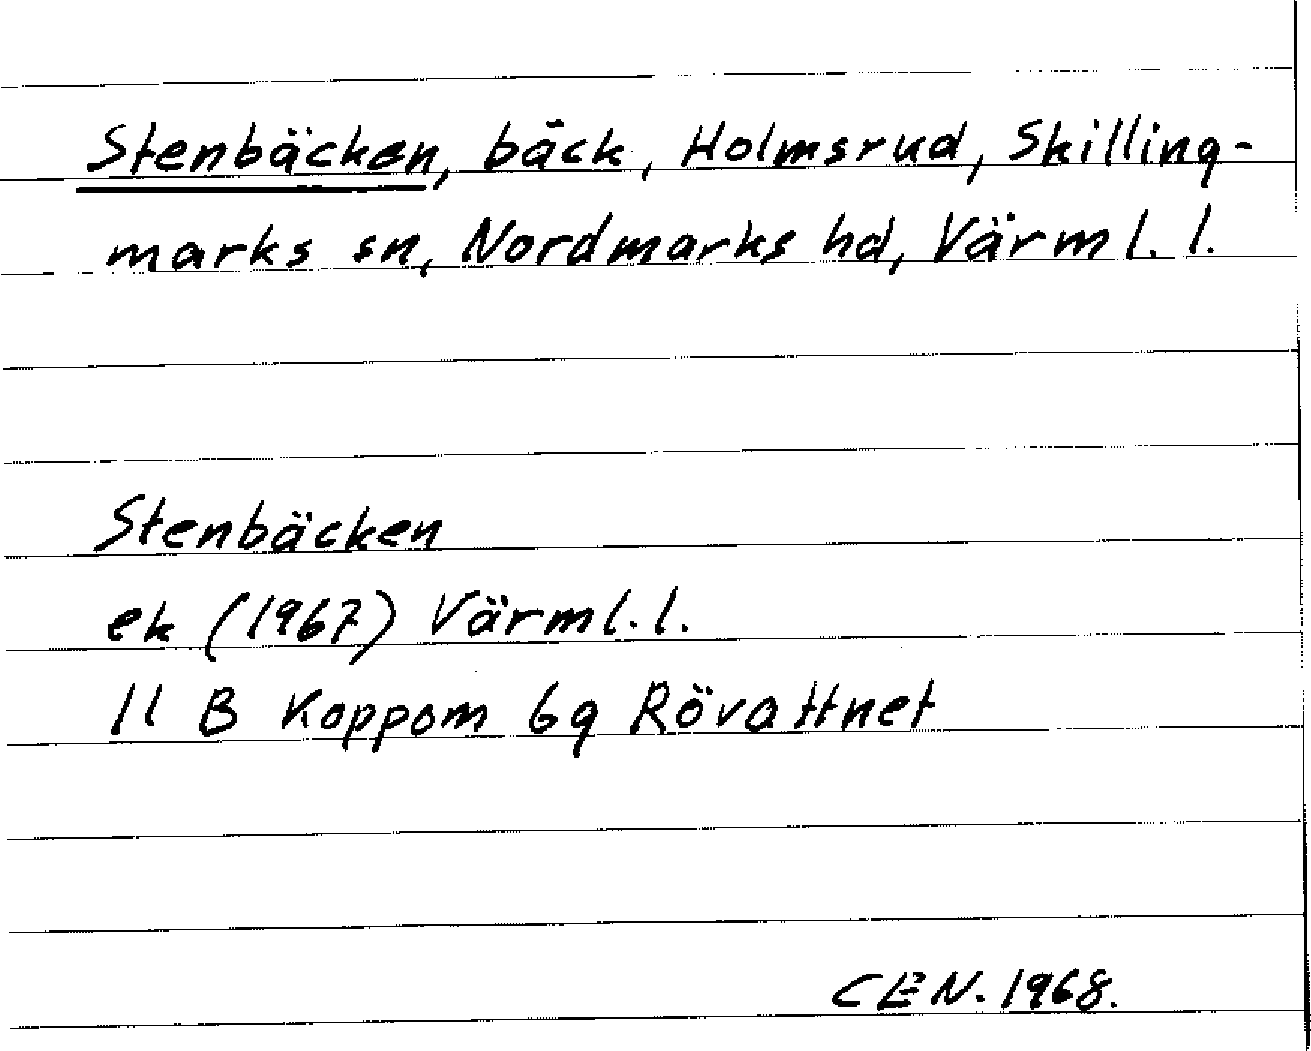 Stenbäcken, bäck, Holmsrud, Skilling-
marks sn, Nordmarks hd, Värml. l.
Stenbäcken
ek (1967) Värml. l.
11 B Koppom 6g Rövattnet
CEN. 1968.